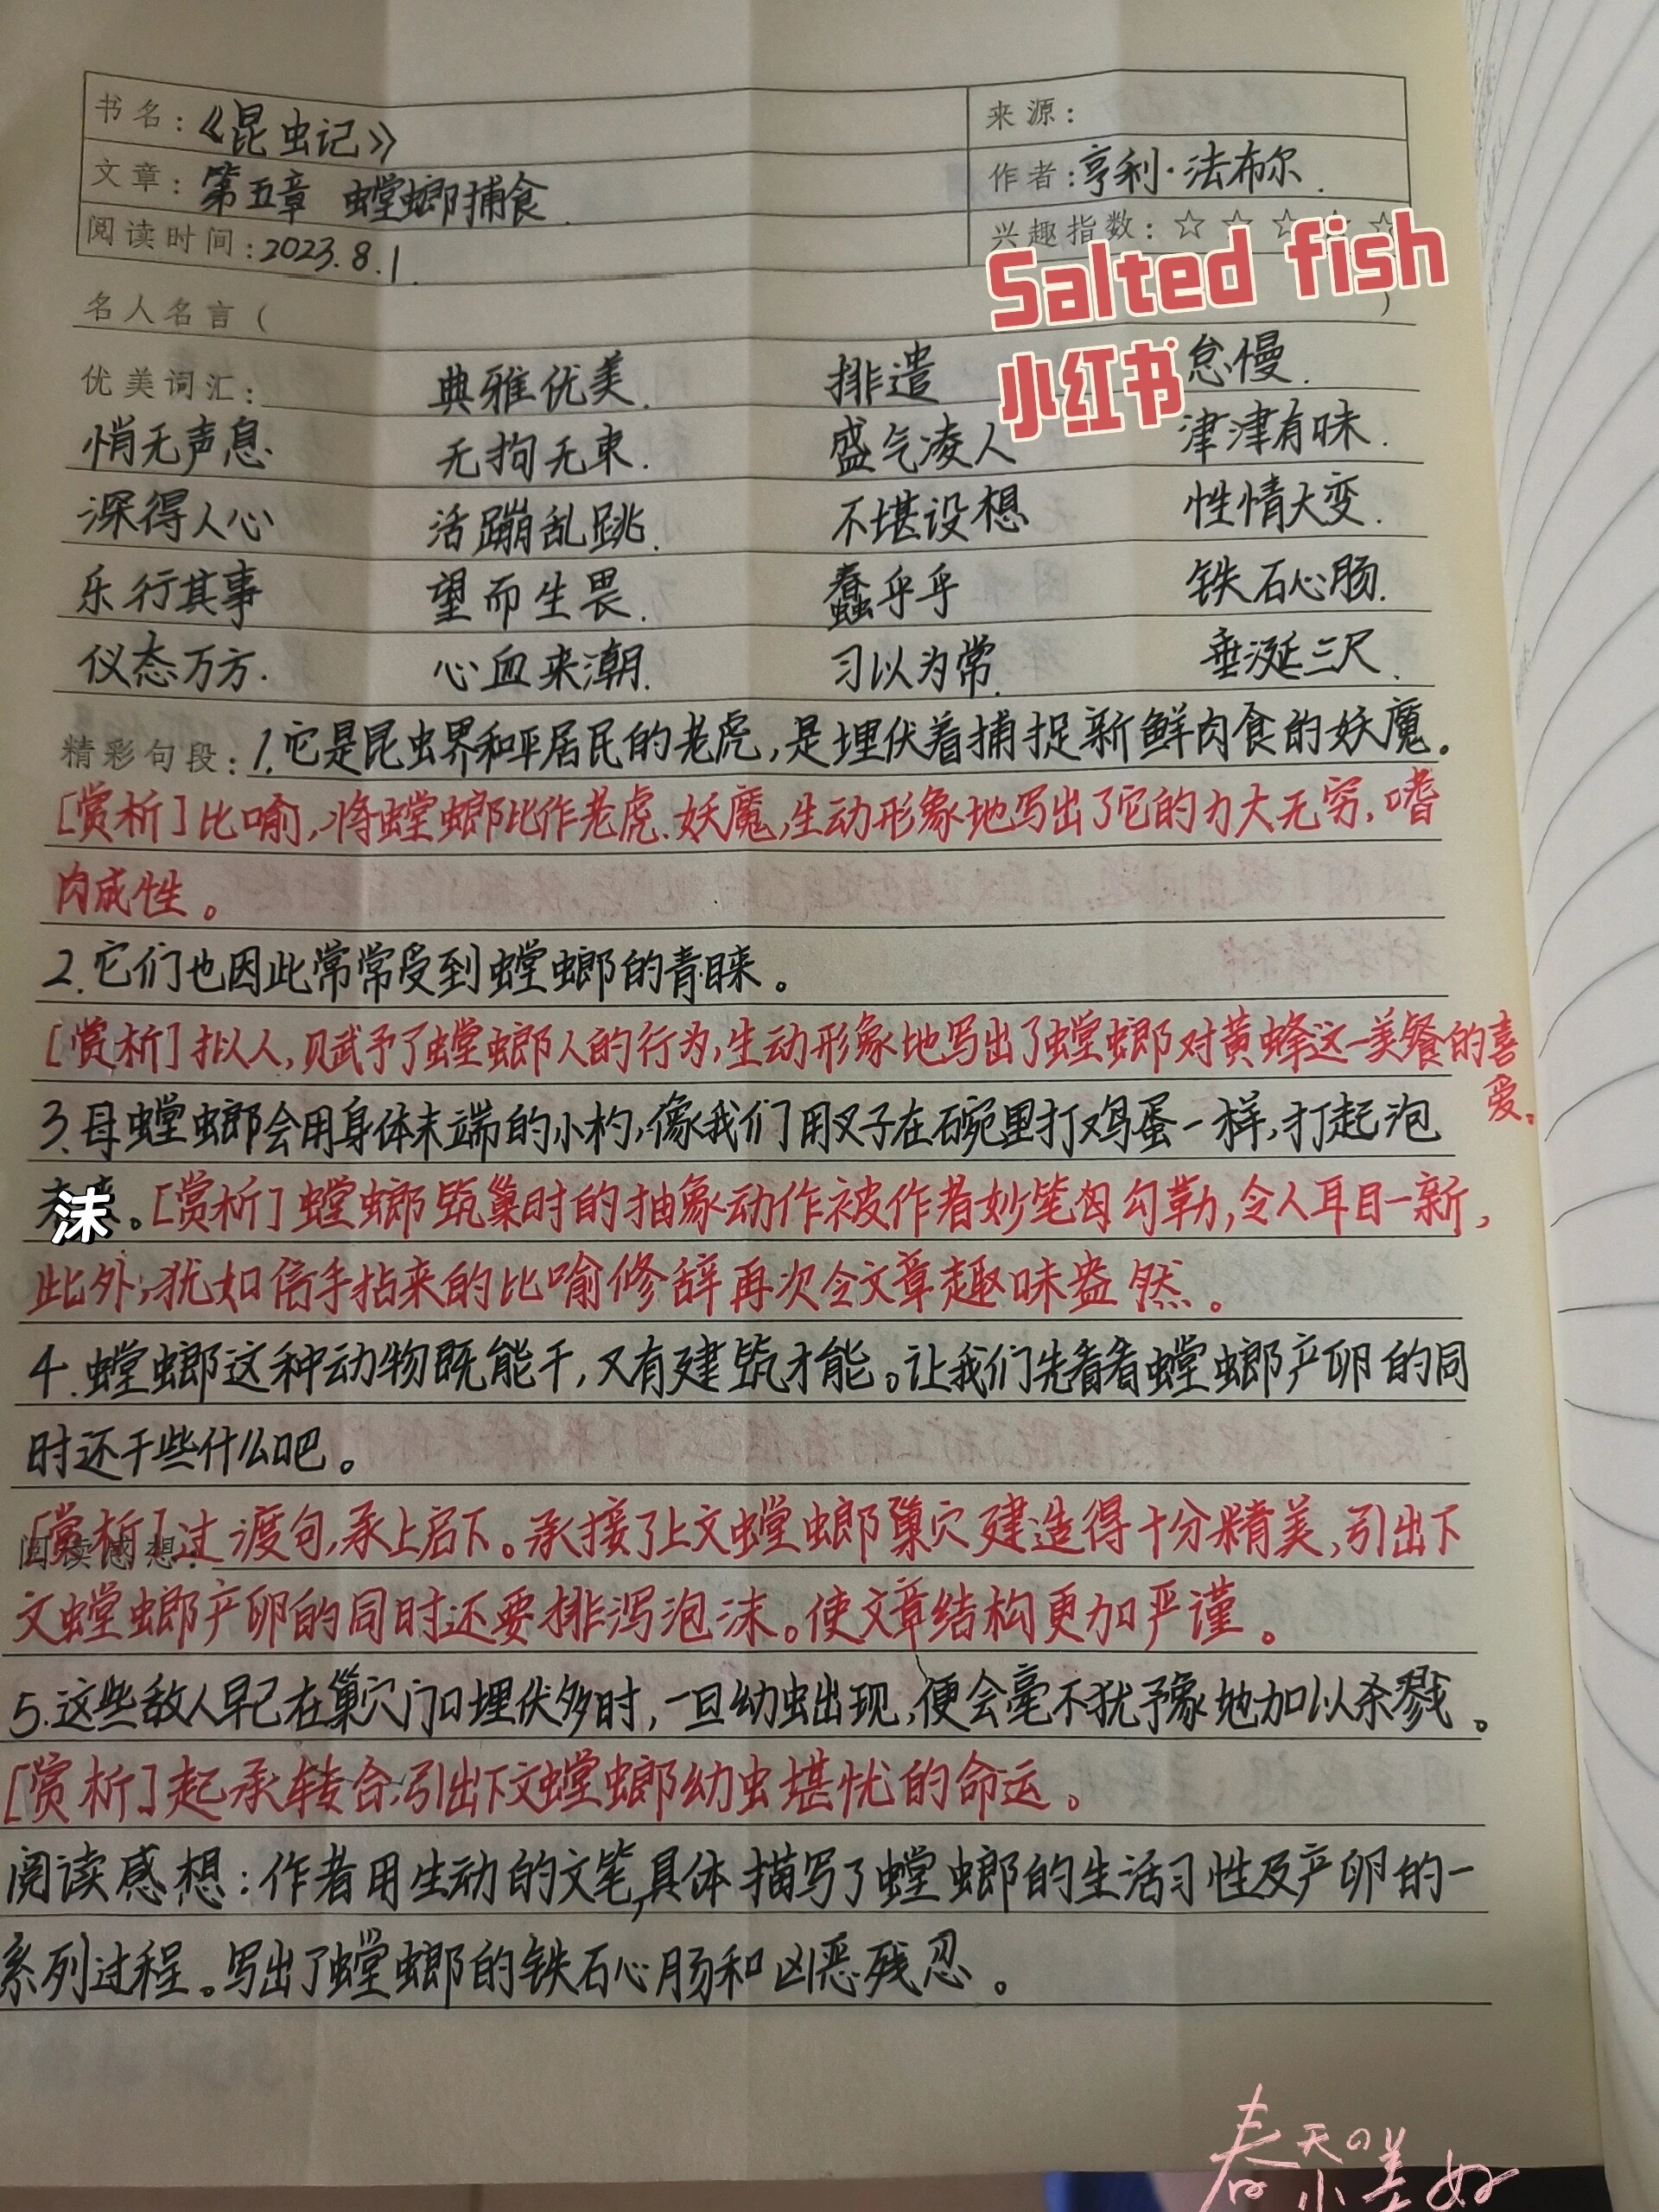 书名：《昆虫记》 来源：
文章：第五章 螳螂捕食. 作者：亨利·法布尔.
阅读时间：2023.8.1. 兴趣指数：☆ ☆ ☆ ☆ ☆
Salted fish
小红书
名人名言（ ）
优美词汇： 典雅优美. 排遣 怠慢.
悄无声息. 无拘无束. 盛气凌人 津津有味.
深得人心 活蹦乱跳. 不堪设想 性情大变.
乐行其事 望而生畏. 蠢乎乎 铁石心肠.
仪态万方. 心血来潮. 习以为常. 垂涎三尺.
精彩句段：1.它是昆虫界和平居民的老虎，是埋伏着捕捉新鲜肉食的妖魔。
[赏析]比喻，将螳螂比作老虎、妖魔，生动形象地写出了它的力大无穷，嗜
肉成性。
2.它们也因此常常受到螳螂的青睐。
[赏析]拟人，赋予了螳螂人的行为，生动形象地写出了螳螂对黄蜂这一美餐的喜
爱。
3.母螳螂会用身体末端的小杓，像我们用叉子在碗里打鸡蛋一样，打起泡
沫。[赏析]螳螂筑巢时的抽象动作被作者妙笔勾勒，令人耳目一新，
此外，犹如信手拈来的比喻修辞再次令文章趣味盎然。
4.螳螂这种动物既能干，又有建筑才能。让我们先看看螳螂产卵的同
时还干些什么吧。
阅读感想：
[赏析]过渡句，承上启下。承接了上文螳螂巢穴建造得十分精美，引出下
文螳螂产卵的同时还要排泻泡沫。使文章结构更加严谨。
5.这些敌人早已在巢穴门口埋伏多时，一旦幼虫出现，便会毫不犹予象地加以杀戮。
[赏析]起承转合，引出下文螳螂幼虫堪忧的命运。
阅读感想：作者用生动的文笔，具体描写了螳螂的生活习性及产卵的一
系列过程。写出了螳螂的铁石心肠和凶恶残忍。
春天の小美好